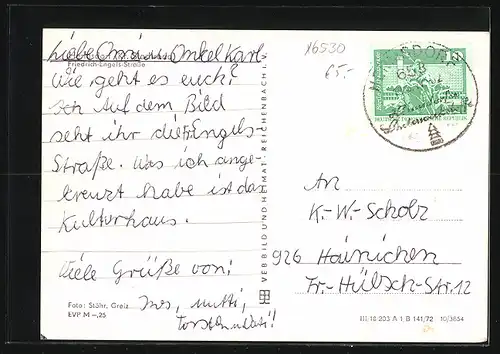 Liebe Omi u. Onkel Karl
Friedrich-Engels-Straße
Wie geht es euch?
Ich Auf dem Bild
seht ihr die Engels-
Straße. Was ich ange-
kreuzt habe ist das
Kulturhaus.
Viele Grüße von:
Ines, Mutti,
Torsten u. Vati!
Foto: Stöhr, Greiz
EVP M –,25
VEB BILD UND HEIMAT · REICHENBACH I. V.
16530
65.-
An
K.-W.-Scholz
926 Hainichen
Fr.-Hülsch-Str. 12
III/18/203 A 1 B 141/72 10/3654